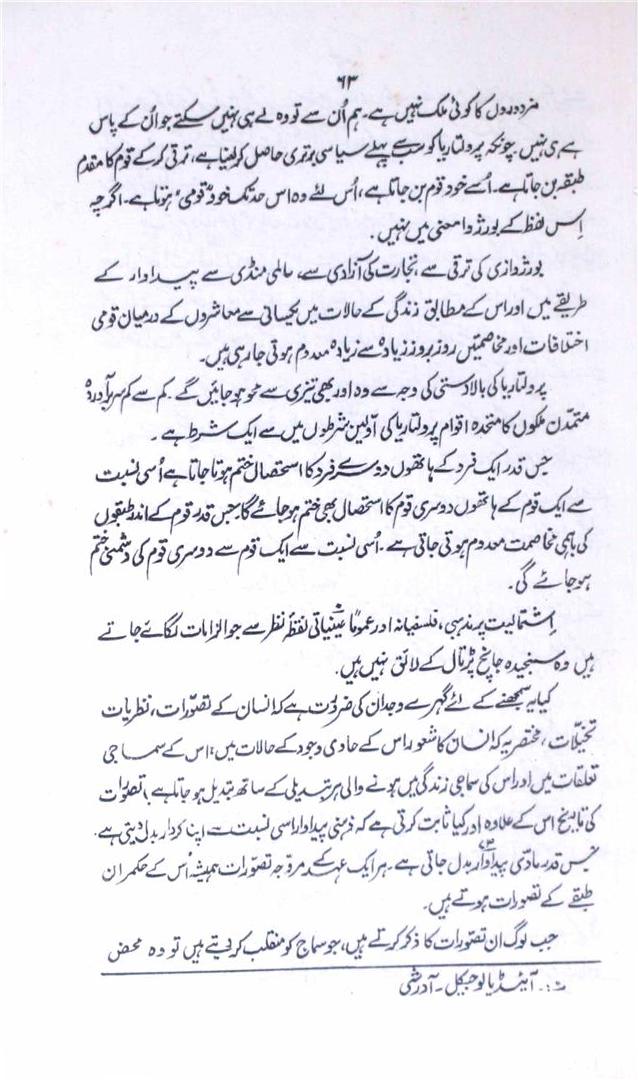 ۶۳
مزدوروں کا کوئی ملک نہیں ہے۔ ہم اُن سے تو وہ لے ہی نہیں سکتے جو اُن کے پاس
ہے ہی نہیں۔ چونکہ پرولتاریا کو سب سے پہلے سیاسی برتری حاصل کرلینا ہے، ترقی کرکے قوم کا مقدم
طبقہ بن جانا ہے۔ اُسے خود قوم بن جانا ہے، اُس لئے وہ اس حد تک خود 'قومی' ہوتا ہے۔ اگرچہ
اِس لفظ کے بورژوا معنی میں نہیں۔
بورژوازی کی ترقی سے، تجارت کی آزادی سے، عالمی منڈی سے پیداوار کے
طریقے میں اور اس کے مطابق زندگی کے حالات میں یکسانی سے معاشروں کے درمیان قومی
اختلافات اور مخاصمتیں روز بروز زیادہ سے زیادہ معدوم ہوتی جا رہی ہیں۔
پرولتاریا کی بالادستی کی وجہ سے وہ اور بھی تیزی سے محو ہو جائیں گے۔ کم سے کم سربرآوردہ
متمدّن ملکوں کا متحدہ اقوام پرولتاریا کی آولین شرطوں میں سے ایک شرط ہے۔
جس قدر ایک فرد کے ہاتھوں دوسرے فرد کا استحصال ختم ہوتا جاتا ہے اُسی نسبت
سے ایک قوم کے ہاتھوں دوسری قوم کا استحصال بھی ختم ہو جائے گا۔ جس قدر قوم کے اندر طبقوں
کی باہمی مخاصمت معدوم ہوتی جاتی ہے۔ اُسی نسبت سے ایک قوم سے دوسری قوم کی دشمنی ختم
ہو جائے گی۔
اِشتمالیت پر مذہبی، فلسفیانہ اور عموماً عینیاتی نقطۂ نظر سے جو الزامات لگائے جاتے
ہیں وہ سنجیدہ جانچ پڑتال کے لائق نہیں ہیں۔
کیا یہ سمجھنے کے لئے گہرے وجدان کی ضرورت ہے کہ انسان کے تصوّرات، نظریات
تخیلّات، مختصر یہ کہ انسان کا شعور اس کے مادی وجود کے حالات میں؛ اس کے سماجی
تعلقات میں اور اس کی سماجی زندگی میں ہونے والی ہر تبدیلی کے ساتھ تبدیل ہو جاتا ہے؛ تصوّرات
کی تاریخ اس کے علاوہ اور کیا ثابت کرتی ہے کہ ذہنی پیداوار اسی نسبت سے اپنا کردار بدل دیتی ہے۔
جس قدر مادّی پیداوار بدل جاتی ہے۔ ہر ایک عہد کے مروّجہ تصورات ہمیشہ اُس کے حکمران
طبقے کے تصورات ہوتے ہیں۔
جب لوگ ان تصوّرات کا ذکر کرتے ہیں، جو سماج کو منقلب کر دیتے ہیں تو وہ محض
آئیڈیالوجیکل۔ آدرشی